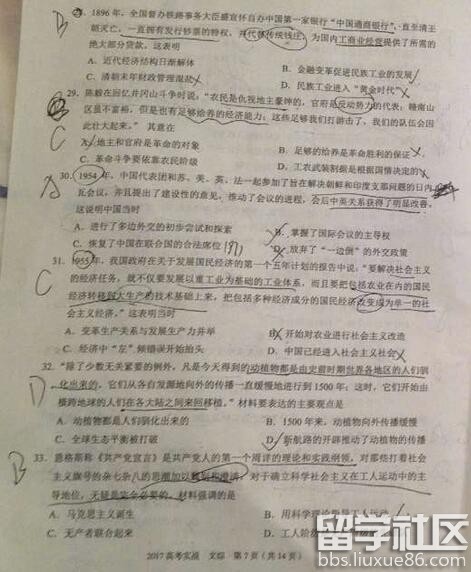 28. 1896年，全国督办铁路事务大臣盛宣怀自办中国第一家银行“中国通商银行”，直至清王
朝灭亡，一直拥有发行钞票的特权，并代替传统钱庄，为国内工商业经营提供了所需的
绝大部分贷款。这表明
A. 近代经济结构日渐解体 B. 金融变革促进民族工业的发展
C. 清朝末年财政管理混乱 D. 民族工业进入“黄金时代”
29. 陈毅在回忆井冈山斗争时说：“农民是仇视地主豪绅的，官府是反动势力的代表；赣南山
区虽不富裕，但是也有足够给养的经济能力；这些足够我们打游击了，我们的队伍会因
此壮大起来。”其意在
A. 地主和官府是革命的对象 B. 足够的给养是革命胜利的保证
C. 革命斗争要依靠农民阶级 D. 工农武装割据是根据国情决定的
30. 1954年，中国代表团和苏、美、英、法一起参加了旨在解决朝鲜和印度支那问题的日内
瓦会议，并且提出了建设性的意见，推动了会议的进程，会后中英关系获得了明显改善。
这说明中国当时
A. 进行了多边外交的初步尝试和探索 B. 掌握了国际会议的主导权
C. 恢复了中国在联合国的合法席位 1971 D. 放弃了“一边倒”的外交政策
31. 1955年，我国政府在关于发展国民经济的第一个五年计划的报告中说：“要解决社会主义
的经济任务，就不仅要发展以重工业为基础的工业体系，而且要把包括农业在内的国民
经济转移到大生产的技术基础上来，把包括多种经济成分的国民经济改变成为单一的社
会主义经济。”这表明当时
A. 变革生产关系与发展生产力并举 B. 开始对农业进行社会主义改造
C. 经济中“左”倾错误开始抬头 D. 中国已经进入社会主义社会
32. “除了少数无关紧要的例外，凡是今天得到的动植物都是由史前时期世界各地区的人们驯
化出来的，它们从各自发源地向外的传播一直缓慢地进行到1500年；这时，它们开始由
横跨地球的人们在各大陆之间来回移植。”材料要表达的主要观点是
A. 动植物都是人们驯化出来的 B. 1500年来，动植物向外传播缓慢
C. 全球生态平衡被打破 D. 新航路的开辟推动了动植物的传播
33. 恩格斯称《共产党宣言》是共产党人的第一个周详的理论和实践纲领，对那些打着社会
主义旗号的杂七杂八的思潮加以甄别和澄清，对于确立科学社会主义在工人运动中的主
导地位，无疑是完全必要的。材料强调的是
A. 马克思主义诞生 B. 用科学理论指导工人运动
C. 无产者联合起来 D. 工人阶
2017高考实战 文综 第7页（共14页）
留学社区
bbs.liuxue86.com